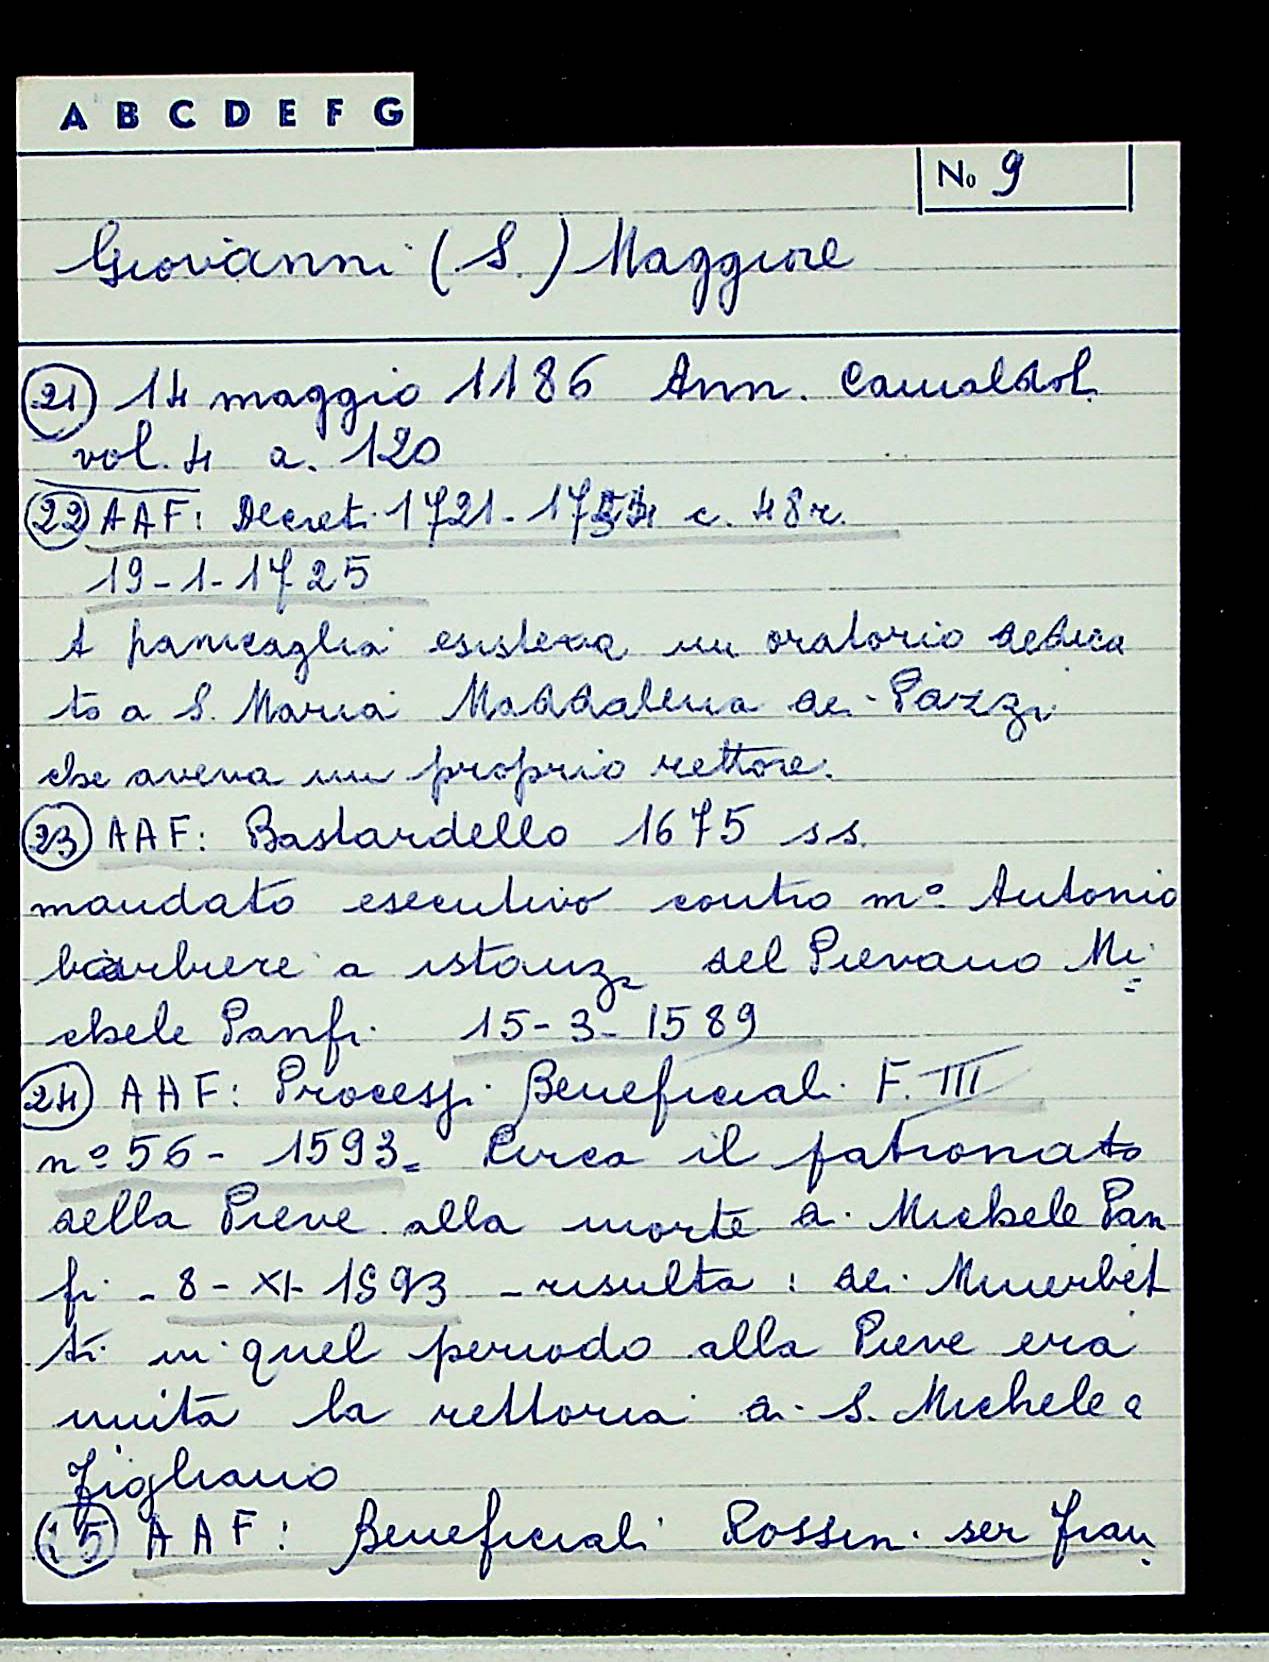 A B C D E F G
No 9
Giovanni (S.) Maggiore
21) 14 maggio 1186 Ann. Camaldol.
vol. 4 a. 120
22) AAF: Decreti 1721-1734 c. 48r.
19-1-1725
A panicaglia esisteva un oratorio dedica
to a S. Maria Maddalena dei Pazzi
che aveva un proprio rettore.
23) AAF: Bastardello 1675 ss.
mandato esecutivo contro mº Antonio
barbiere a istanza del Pievano Mi=
chele Panfi. 15-3-1589
24) AAF: Processi Beneficiali F. III
nº 56 - 1593. Circa il patronato
della Pieve alla morte di Michele Pan
fi - 8-XI-1593 - risulta: dei Minerbet
ti. in quel periodo alla Pieve era
unita la rettoria di S. Michele a
Figliano
15) AAF: Beneficiali Rossin. ser Fran.